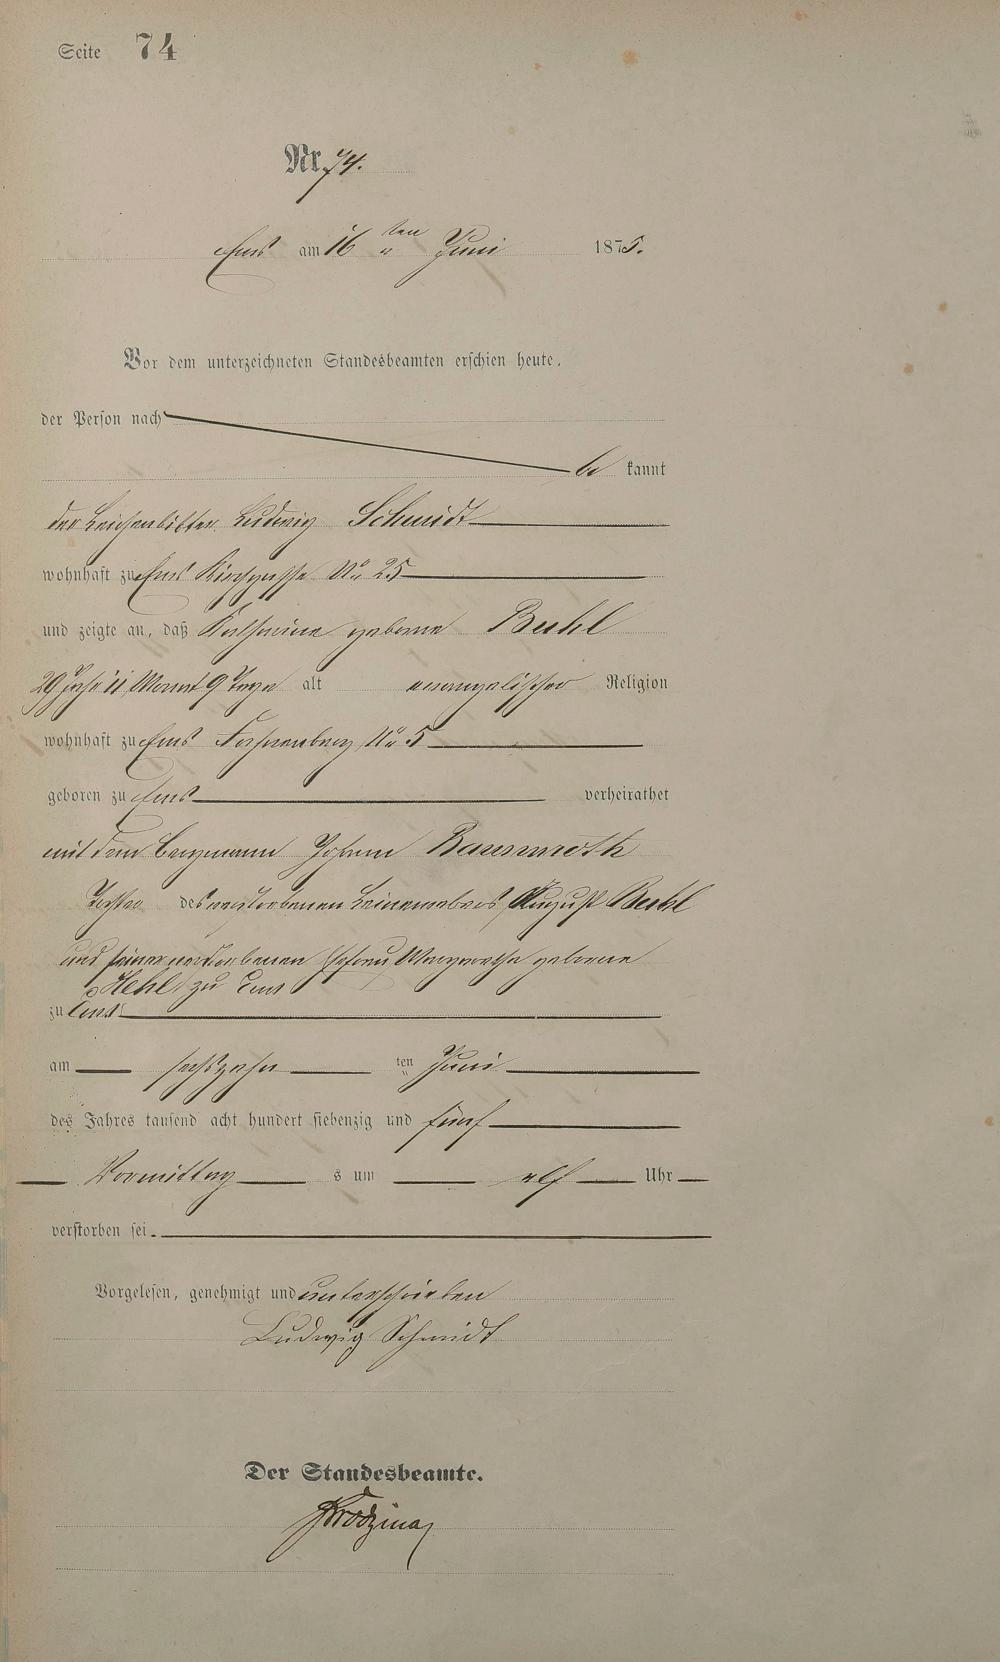 Seite 74
Nr. 74.
Ems am 16 ten Juni 1875.
Vor dem unterzeichneten Standesbeamten erschien heute,
der Person nach
be kannt
der Leichenbitter Ludwig Schmidt
wohnhaft zu Ems Kirchgasse No 25
und zeigte an, daß Katharine geborne Buhl
29 Jahr 11 Monat 9 Tage alt evangelischer Religion
wohnhaft zu Ems No 5
geboren zu Ems verheirathet
mit dem Bergmann Johann
Tochter des verstorbenen Leinewebers August Buhl
und seiner verstorbenen Ehefrau Margarethe geborne
Hehl zu Ems
zu Ems
am sechszehn ten Juni
des Jahres tausend acht hundert siebenzig und fünf
Vormittag s um elf Uhr
verstorben sei.
Vorgelesen, genehmigt und unterschrieben
Ludwig Schmidt
Der Standesbeamte.